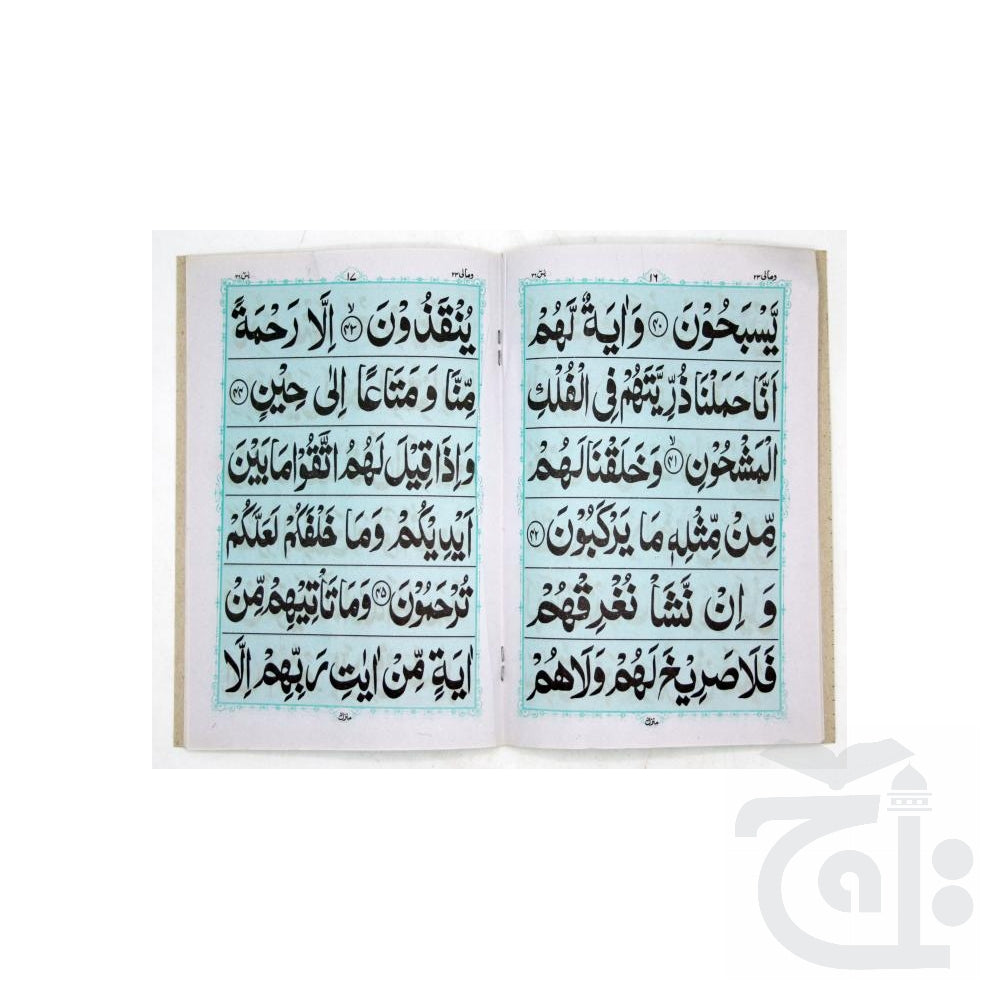 یٰسٓ ٣٦
١٦
ومالی ٢٣
یَّسْبَحُوْنَ ﴿۴۰﴾ وَاٰیَةٌ لَّهُمْ
اَنَّا حَمَلْنَا ذُرِّیَّتَهُمْ فِی الْفُلْكِ
الْمَشْحُوْنِ ﴿۴۱﴾ۙ وَخَلَقْنَا لَهُمْ
مِّنْ مِّثْلِهٖ مَا یَرْكَبُوْنَ ﴿۴۲﴾
وَ اِنْ نَّشَاْ نُغْرِقْهُمْ
فَلَا صَرِیْخَ لَهُمْ وَلَاهُمْ
یٰسٓ ٣٦
١٧
ومالی ٢٣
یُنْقَذُوْنَ ﴿۴۳﴾ۙ اِلَّا رَحْمَةً
مِّنَّا وَ مَتَاعًا اِلٰی حِیْنٍ ﴿۴۴﴾
وَاِذَا قِیْلَ لَهُمُ اتَّقُوْا مَا بَیْنَ
اَیْدِیْكُمْ وَمَا خَلْفَكُمْ لَعَلَّكُمْ
تُرْحَمُوْنَ ﴿۴۵﴾ وَمَا تَاْتِیْهِمْ مِّنْ
اٰیَةٍ مِّنْ اٰیٰتِ رَبِّهِمْ اِلَّا